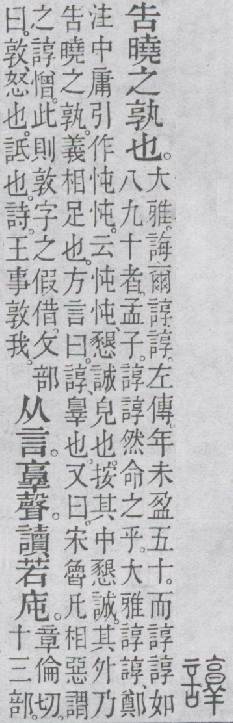 諄
告曉之孰也。大雅。誨爾諄諄。左傳。年未盈五十。而諄諄如
八九十者。孟子。諄諄然命之乎。大雅諄諄鄭
注中庸引作忳忳。云忳忳、懇誠皃也。按其中懇誠。其外乃
告曉之孰。義相足也。方言曰。諄、辠也。又曰。宋魯凡相惡謂
之諄憎。此則敦字之假借。攵部
曰。敦、怒也。詆也。詩。王事敦我。
从言。𦎫聲。讀若庉。章倫切。
十三部。